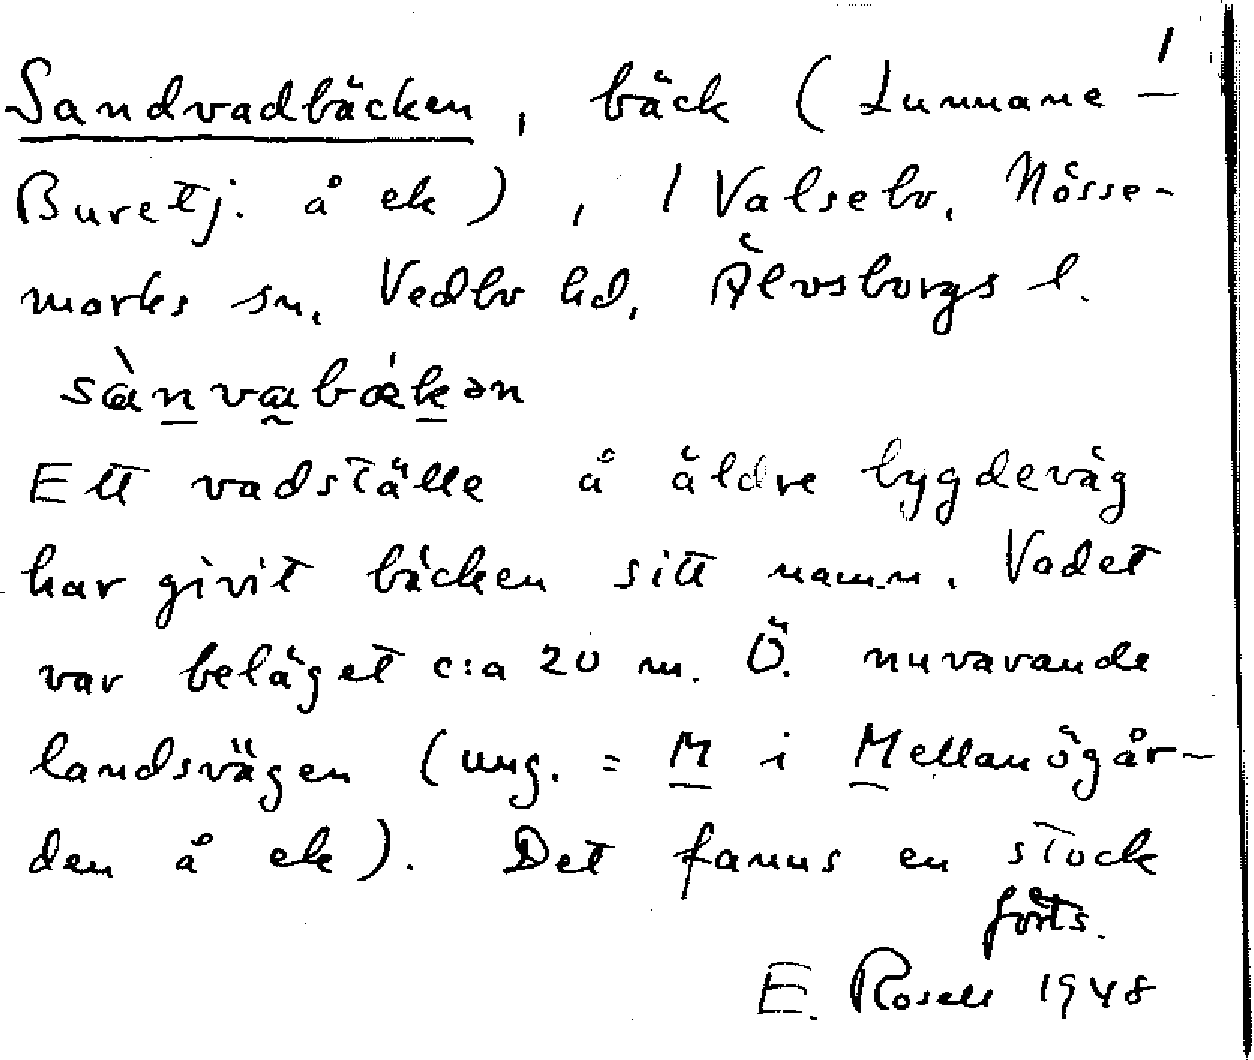 1
Sandvadbäcken, bäck (Lunnane-
Buretj. å ek), 1 Valsebo, Nösse-
marks sn, Vedbo hd, Älvsborgs l.
sànvabǽkən
Ett vadställe å äldre bygdeväg
har givit bäcken sitt namn. Vadet
var beläget c:a 20 m. Ö. nuvarande
landsvägen (ung. = M i Mellanögår-
den å ek). Det fanns en stock
forts.
E. Rosell 1948